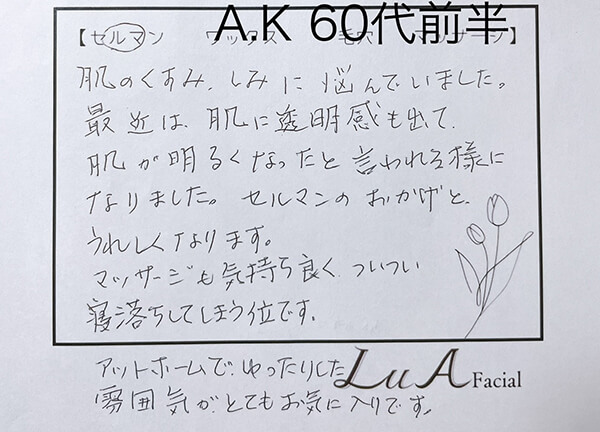 A.K 60代前半
【セルマン ワックス 毛穴 マッサージ】
肌のくすみ、しみに悩んでいました。
最近は、肌に透明感も出て、
肌が明るくなったと言われる様に
なりました。セルマンのおかげと、
うれしくなります。
マッサージも気持ち良く、ついつい
寝落ちしてしまう位です。
アットホームで、ゆったりした
雰囲気がとてもお気に入りです。
LuA Facial